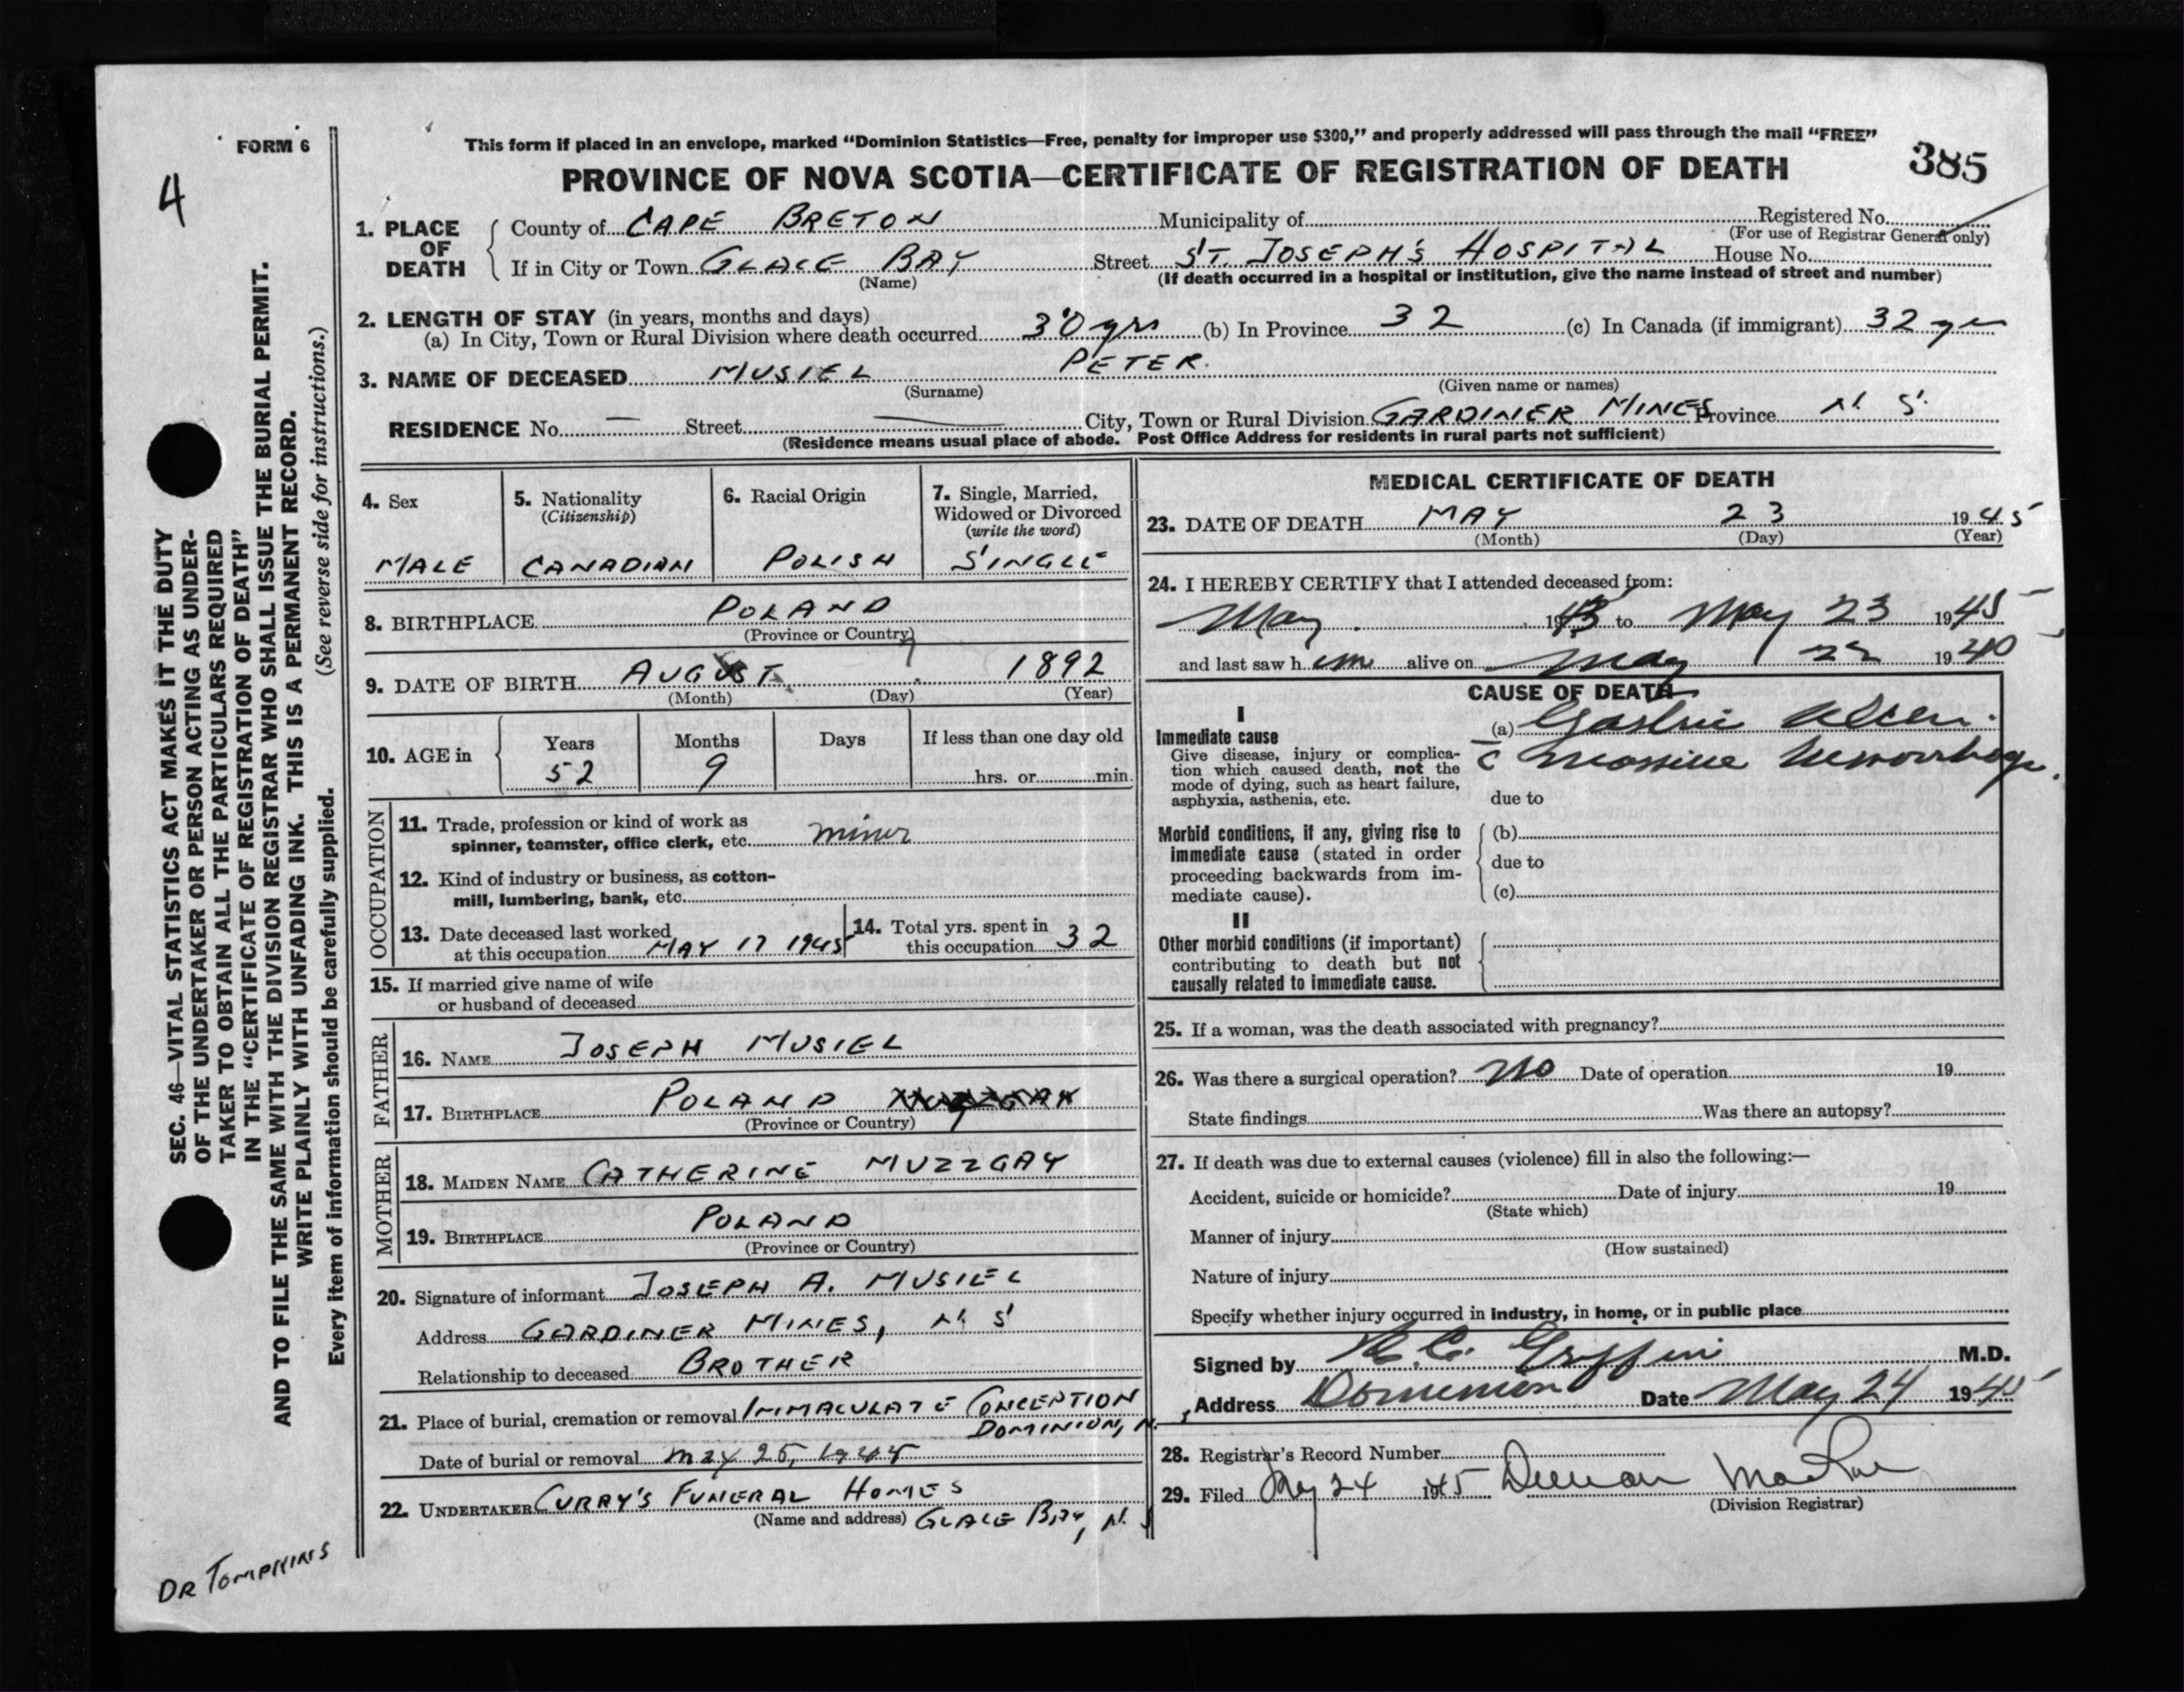 FORM 6
4
This form if placed in an envelope, marked "Dominion Statistics—Free, penalty for improper use $300," and properly addressed will pass through the mail "FREE"
PROVINCE OF NOVA SCOTIA—CERTIFICATE OF REGISTRATION OF DEATH
385
1. PLACE OF DEATH
County of CAPE BRETON Municipality of Registered No.
(For use of Registrar General only)
If in City or Town GLACE BAY Street ST. JOSEPH'S HOSPITAL House No.
(Name) (If death occurred in a hospital or institution, give the name instead of street and number)
2. LENGTH OF STAY (in years, months and days)
(a) In City, Town or Rural Division where death occurred 30 yrs (b) In Province 32 (c) In Canada (if immigrant) 32 yr
3. NAME OF DECEASED MUSIEL PETER.
(Surname) (Given name or names)
RESIDENCE No. — Street — City, Town or Rural Division GARDINER MINES Province N. S.
(Residence means usual place of abode. Post Office Address for residents in rural parts not sufficient)
4. Sex
MALE
5. Nationality
(Citizenship)
CANADIAN
6. Racial Origin
POLISH
7. Single, Married, Widowed or Divorced
(write the word)
SINGLE
8. BIRTHPLACE POLAND
(Province or Country)
9. DATE OF BIRTH AUGUST 1892
(Month) (Day) (Year)
10. AGE in
Years Months Days If less than one day old
52 9 hrs. or min.
OCCUPATION
11. Trade, profession or kind of work as
spinner, teamster, office clerk, etc. miner
12. Kind of industry or business, as cotton-
mill, lumbering, bank, etc.
13. Date deceased last worked
at this occupation MAY 17 1945
14. Total yrs. spent in
this occupation 32
15. If married give name of wife
or husband of deceased
FATHER
16. NAME JOSEPH MUSIEL
17. BIRTHPLACE POLAND
(Province or Country)
MOTHER
18. MAIDEN NAME CATHERINE MUZZGAY
19. BIRTHPLACE POLAND
(Province or Country)
20. Signature of informant JOSEPH A. MUSIEL
Address GARDINER MINES, N. S
Relationship to deceased BROTHER
21. Place of burial, cremation or removal IMMACULATE CONCEPTION
DOMINION, N.
Date of burial or removal May 25, 1945
22. UNDERTAKER CURRY'S FUNERAL HOMES
(Name and address) GLACE BAY, N. S
MEDICAL CERTIFICATE OF DEATH
23. DATE OF DEATH MAY 23 1945
(Month) (Day) (Year)
24. I HEREBY CERTIFY that I attended deceased from:
May 1943 to May 23 1945
and last saw h im alive on May 22 19
CAUSE OF DEATH
I
Immediate cause
Give disease, injury or complica-
tion which caused death, not the
mode of dying, such as heart failure,
asphyxia, asthenia, etc.
(a) Gastric Ulcer.
c massive hemorrhage.
due to
Morbid conditions, if any, giving rise to
immediate cause (stated in order
proceeding backwards from im-
mediate cause).
(b)
due to
(c)
II
Other morbid conditions (if important)
contributing to death but not
causally related to immediate cause.
25. If a woman, was the death associated with pregnancy?
26. Was there a surgical operation? no Date of operation 19
State findings Was there an autopsy?
27. If death was due to external causes (violence) fill in also the following:—
Accident, suicide or homicide? Date of injury 19
(State which)
Manner of injury
(How sustained)
Nature of injury
Specify whether injury occurred in industry, in home, or in public place
Signed by Griffin M.D.
Address Dominion Date May 24 1945
28. Registrar's Record Number
29. Filed May 24 1945 Duncan MacRae
(Division Registrar)
SEC. 46—VITAL STATISTICS ACT MAKES IT THE DUTY
OF THE UNDERTAKER OR PERSON ACTING AS UNDER-
TAKER TO OBTAIN ALL THE PARTICULARS REQUIRED
IN THE "CERTIFICATE OF REGISTRATION OF DEATH"
AND TO FILE THE SAME WITH THE DIVISION REGISTRAR WHO SHALL ISSUE THE BURIAL PERMIT.
WRITE PLAINLY WITH UNFADING INK. THIS IS A PERMANENT RECORD.
Every item of information should be carefully supplied. (See reverse side for instructions.)
DR TOMPKINS